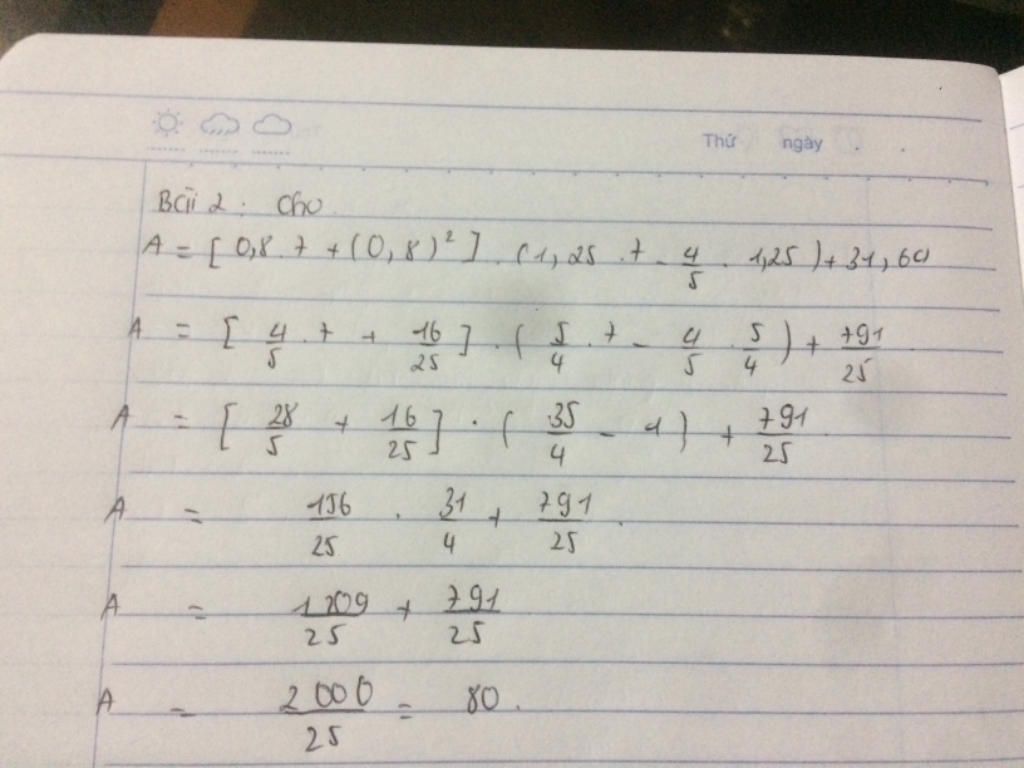 Thứ ngày
Bài 2: Cho
A = [ 0,8 . 7 + (0,8)² ] . (1,25 . 7 - 4/5 . 1,25) + 31,64
A = [ 4/5 . 7 + 16/25 ] . ( 5/4 . 7 - 4/5 . 5/4 ) + 791/25
A = [ 28/5 + 16/25 ] . ( 35/4 - 1 ) + 791/25
A = 156/25 . 31/4 + 791/25 .
A = 1209/25 + 791/25
A = 2000/25 = 80 .